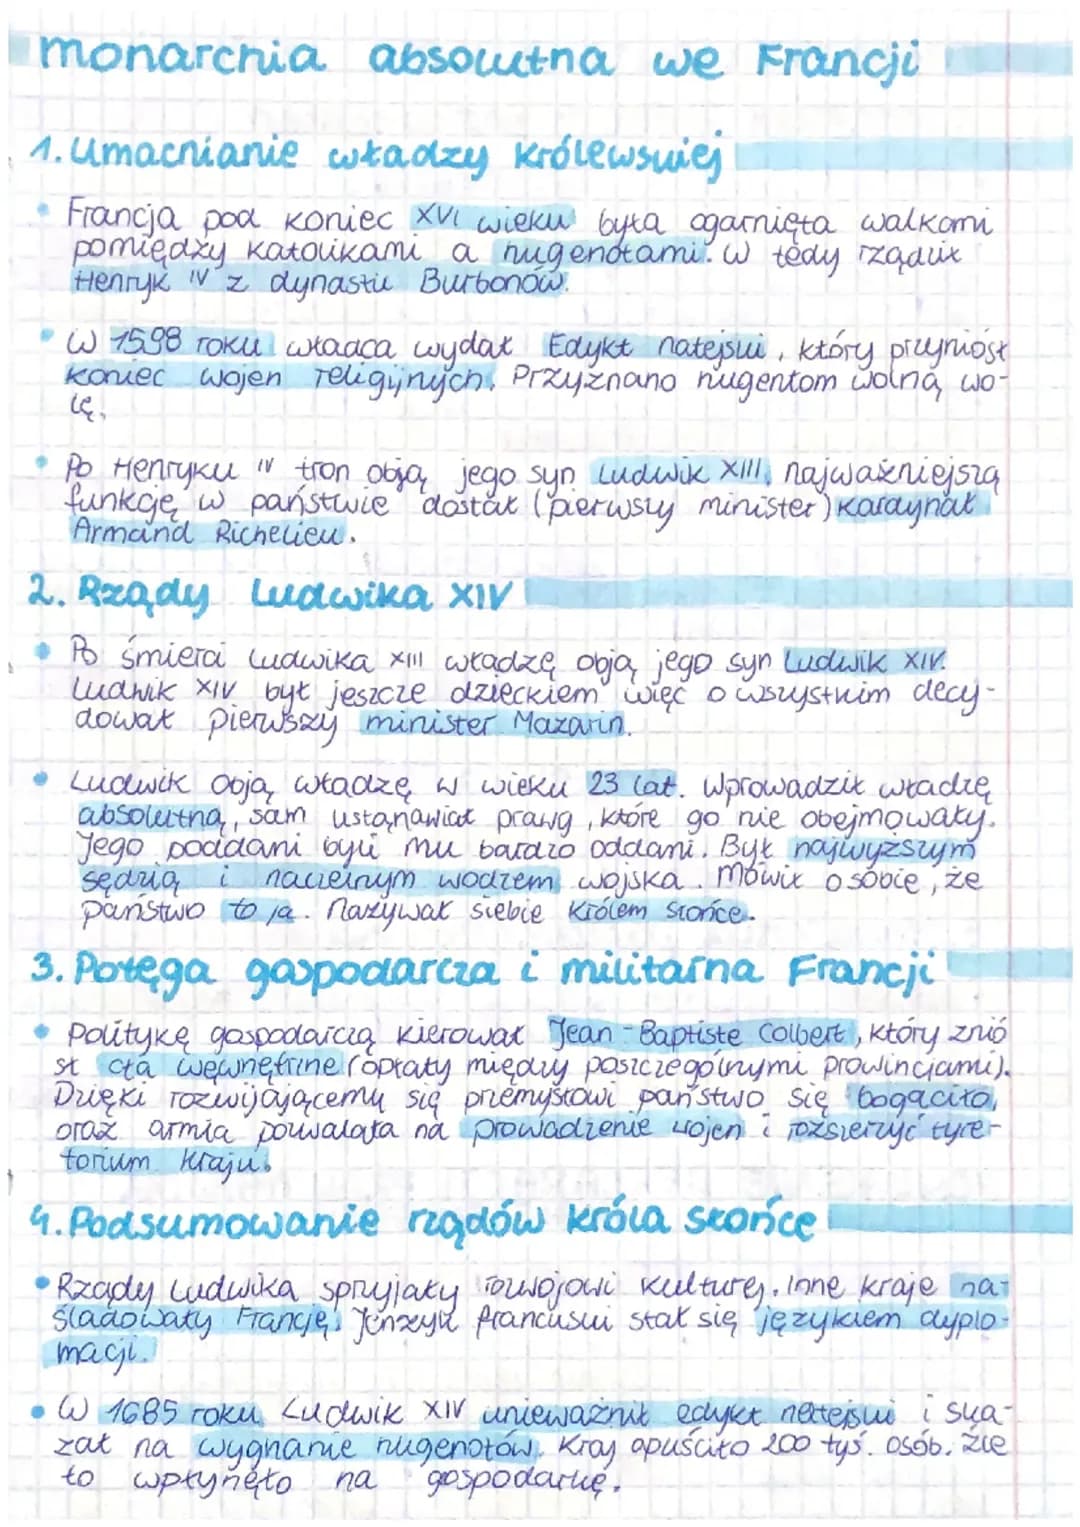 monarchia absolutna we Francji
1. Umacnianie władzy królewskiej
• Francja pod koniec XVI wieku była ogarnięta walkami
pomiędzy katolikami a hugenotami. W tedy rządził
Henryk IV z dynastii Burbonów.
• W 1598 roku władca wydał Edykt natejski, który przyniósł
koniec wojen religijnych. Przyznano hugentom wolną wo-
lę.
• Po Henryku IV tron obją jego syn Ludwik XIII, najważniejszą
funkcję w państwie dostał (pierwszy minister) kardynał
Armand Richelieu.
2. Rządy Ludwika XIV
• Po śmierci Ludwika XIII władzę obją jego syn Ludwik XIV.
Ludwik XIV był jeszcze dzieckiem więc o wszystkim decy-
dował pierwszy minister Mazarin.
• Ludwik obją władzę w wieku 23 lat. Wprowadził władzę
absolutną, sam ustanawiał prawa, które go nie obejmowały.
Jego poddani byli mu bardzo oddani. Był najwyższym
sędzią i naczelnym wodzem wojska. Mówił o sobie, że
państwo to ja. Nazywał siebie Królem Słońce.
3. Potęga gospodarcza i militarna Francji
• Politykę gospodarczą kierował Jean-Baptiste Colbert, który znió
sł cła wewnętrzne (opłaty między poszczególnymi prowincjami).
Dzięki rozwijającemu się przemysłowi państwo się bogaciło,
oraz armia pozwalała na prowadzenie wojen i rozszerzyć tyre-
torium kraju.
4. Podsumowanie rządów króla słońce
• Rządy Ludwika sprzyjały rozwojowi kulturej. Inne kraje na-
śladowały Francję. Jenzyk francuski stał się językiem dyplo-
macji.
• W 1685 roku Ludwik XIV unieważnił edykt natejski i ska-
zał na wygnanie hugenotów. Kraj opuściło 200 tyś. osób. Źle
to wpłynęło na gospodarkę.